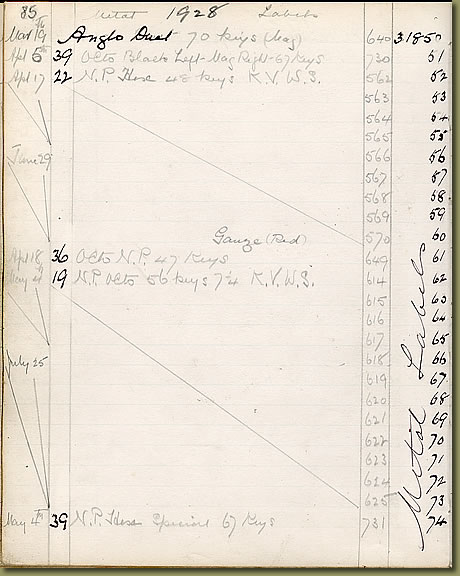 85 Metal 1928 Labels
Mar 19th Anglo Duet 70 keys (Mag) 640 31850
Apl 5th 39 Octo Blacks Left-Mag Right-67 Keys 730 51
Apl 17 22 N.P. Hex 48 keys K.V.W.S. 562 52
563 53
564 54
565 55
June 29 566 56
567 57
568 58
569 59
Gauze (Red) 570 60
Apl 18 36 Octo N.P. 47 Keys 649 61
May 4 19 N.P. Octo 56 keys 7¼ K.V.W.S. 614 62
615 63
616 64
617 65
July 25 618 66
619 67
620 68
621 69
622 70
623 71
624 72
625 73
May 4th 39 N.P. Hex Special 67 Keys 731 74
Metal Labels